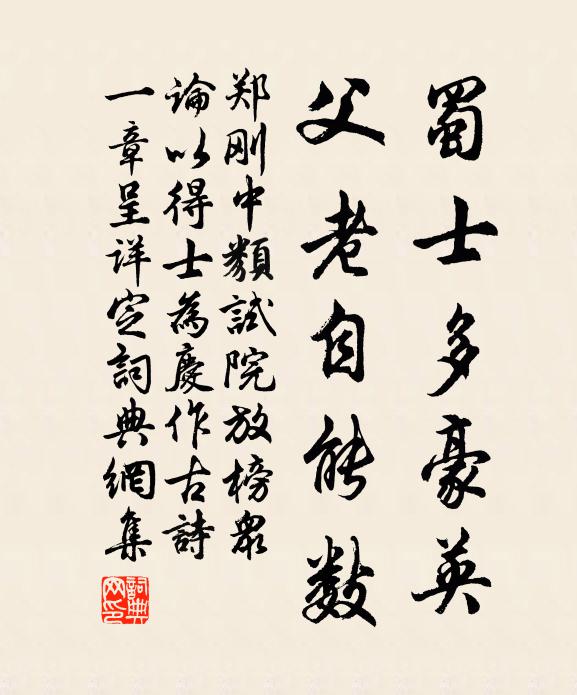 蜀士多豪英
父老自能数
郑刚中類試院放榜眾
論以得士為慶作古詩
一章呈详定詞典網集
詞典网印